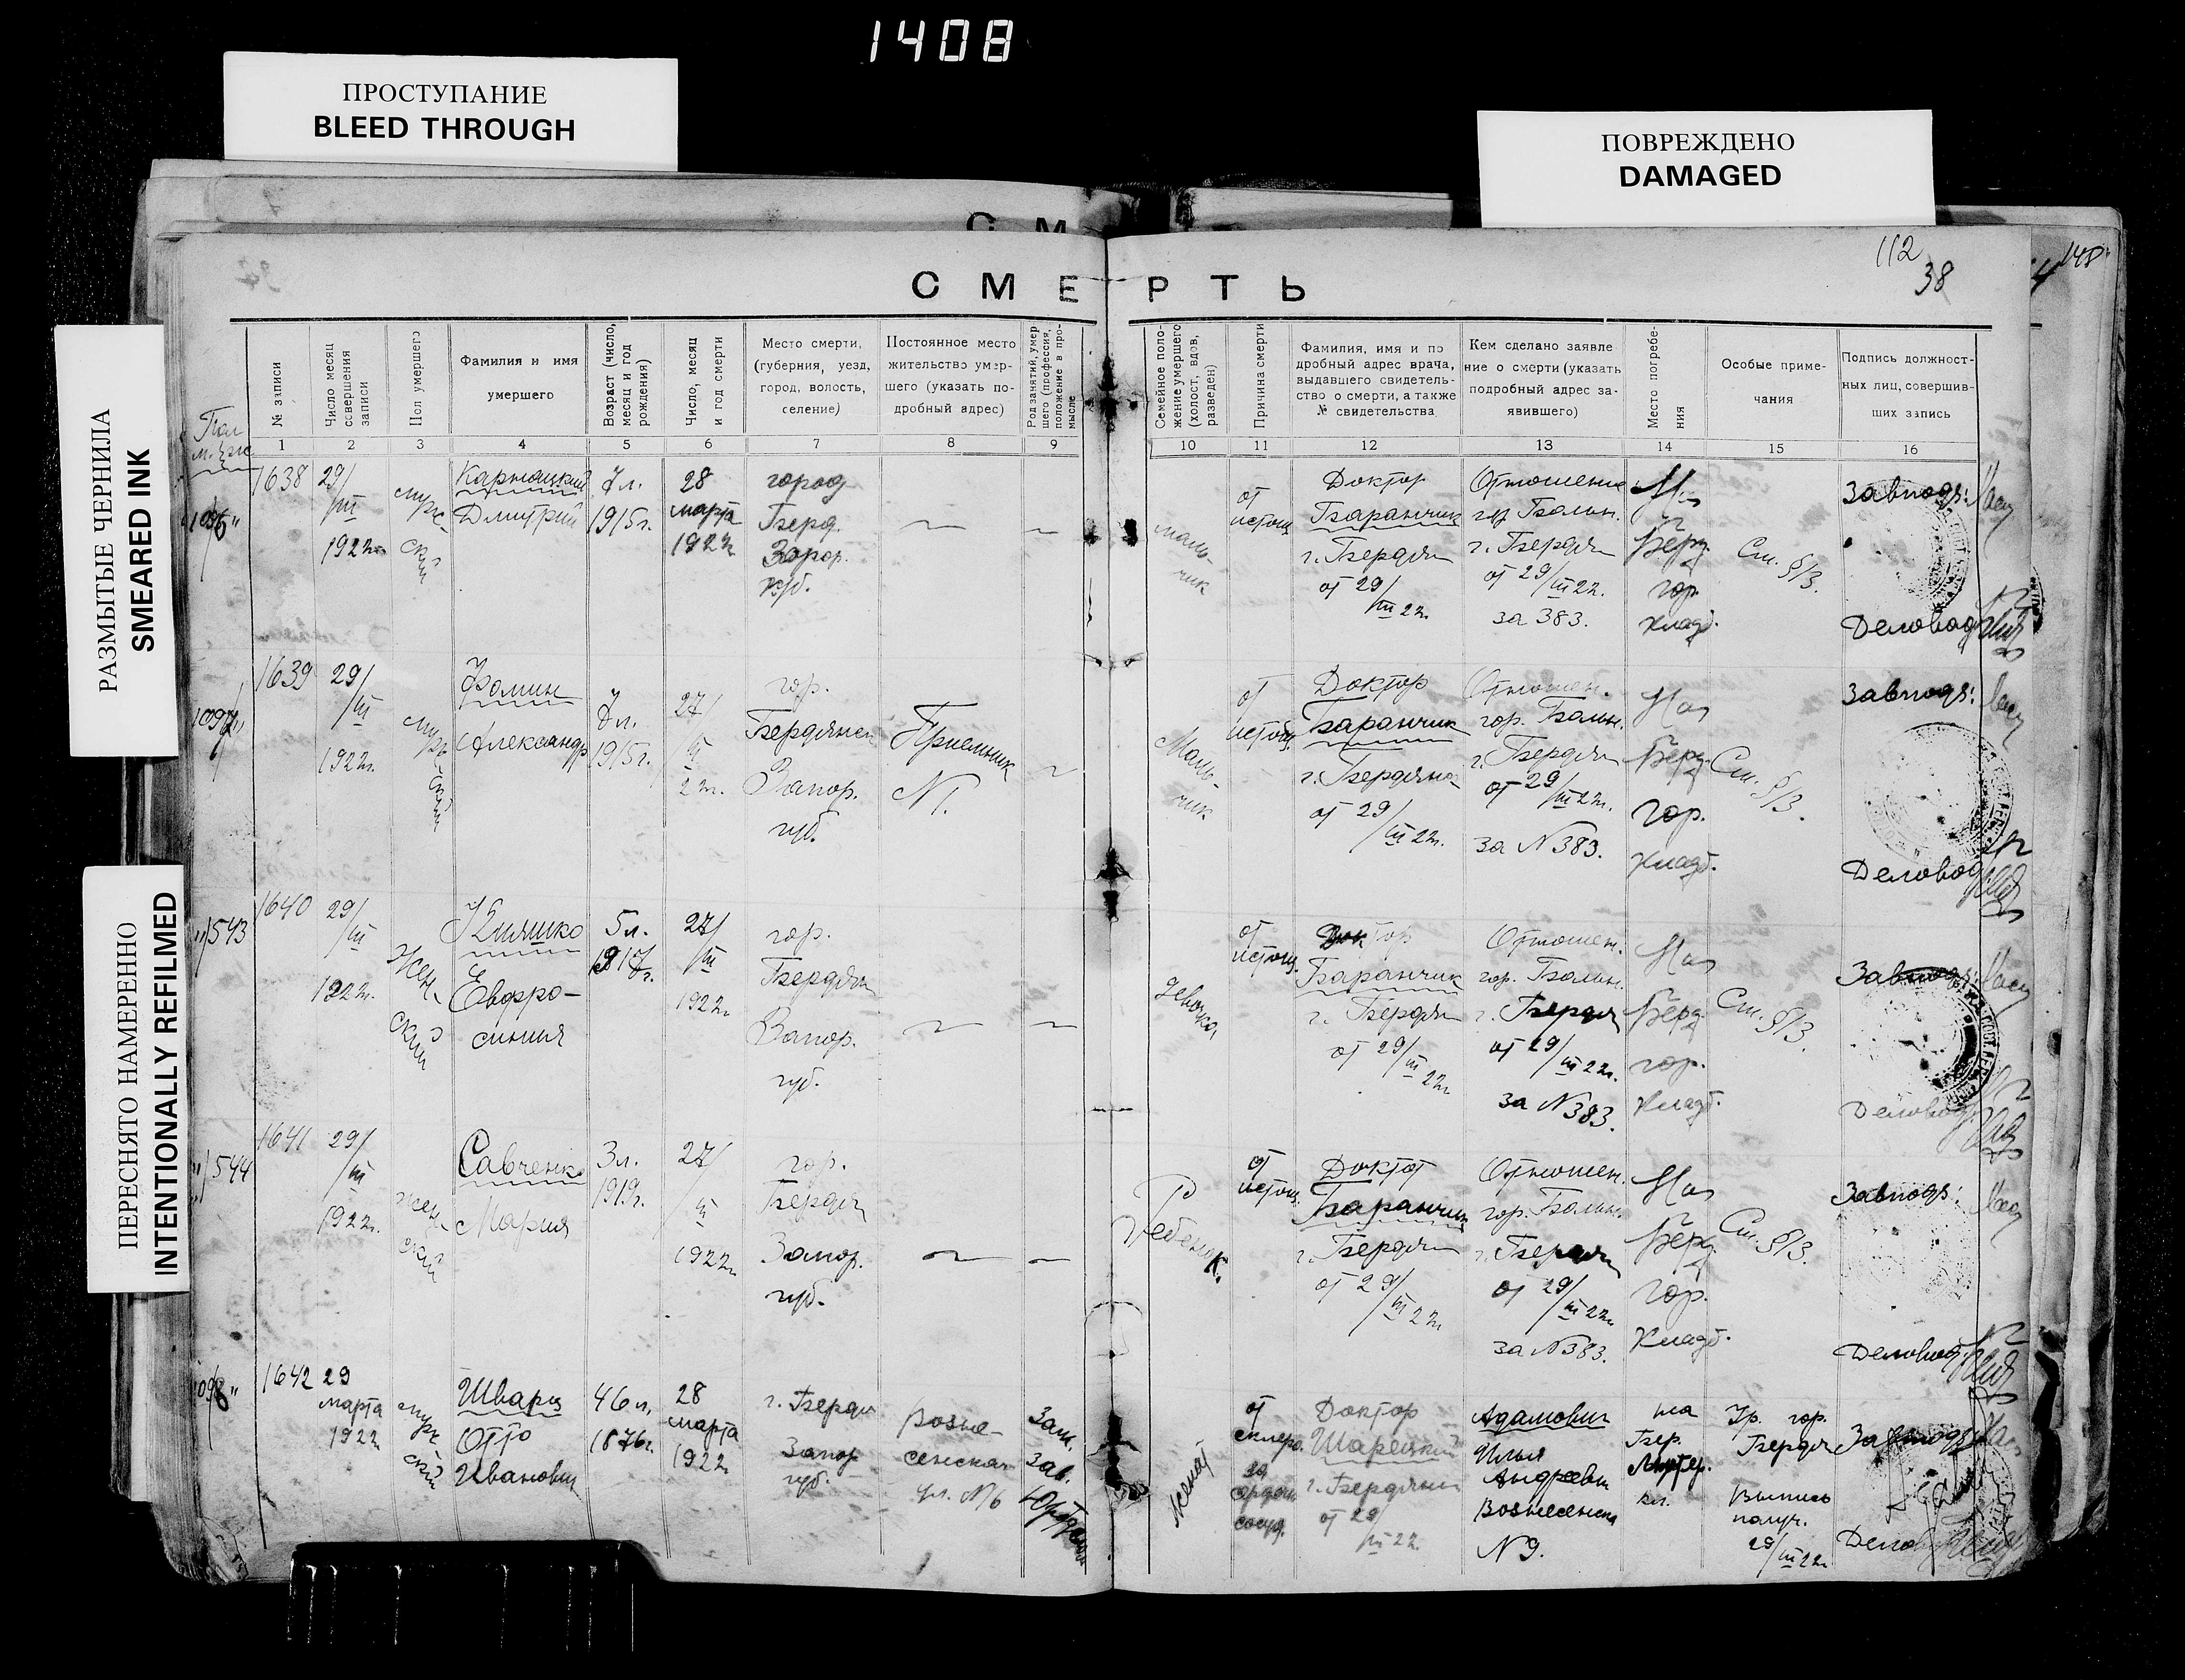 1408
ПРОСТУПАНИЕ
BLEED THROUGH
ПОВРЕЖДЕНО
DAMAGED
РАЗМЫТЫЕ ЧЕРНИЛА
SMEARED INK
ПЕРЕСНЯТО НАМЕРЕННО
INTENTIONALLY REFILMED
С М
112
38
СМЕРТЬ
№ записи
Число месяц
совершения
записи
Пол умершего
Фамилия и имя
умершего
Возраст (число,
месяц и год
рождения)
Число, месяц
и год смерти
Место смерти,
(губерния, уезд,
город, волость,
селение)
Постоянное место
жительство умер-
шего (указать по-
дробный адрес)
Род занятий, умер
шего (профессия,
положение в про-
мысле
Семейное поло-
жение умершего
(холост, вдов,
разведен)
Причина смерти
Фамилия, имя и по
дробный адрес врача,
выдавшего свидетель-
ство о смерти, а также
№ свидетельства
Кем сделано заявле
ние о смерти (указать
подробный адрес за-
явившего)
Место погребе-
ния
Особые приме-
чания
Подпись должност-
ных лиц, совершив-
ших запись
1 2 3 4 5 6 7 8 9 10 11 12 13 14 15 16
1638
29/III
1922г.
муж-
ский
Дмитрий
7л.
1915г.
28
марта
1922г
город
Берд.
—
—
маль-
чик
от
истощ.
Доктор
Баранчик
г. Бердян
от 29/III 22г.
Отношение
г. Бердян
от 29/III 22г.
за 383.
На
Берд.
гор.
кладб.
Ст. 8/3.
Завподз:
Деловод
1639
29/III
1922г.
муж-
ский
Фомин
Александр
7л.
1915г.
27/III
22г.
гор.
Бердянск
Запор.
губ.
Приемник
№1.
Маль-
чик
от
истощ.
Доктор
Баранчик
г. Бердянск
от 29/III 22г.
Отношен.
гор. Больн.
г. Бердян
от 29/III 22г.
за №383.
На
Берд.
гор.
кладб.
Ст. 8/3.
Завподз:
Деловод
543
1640
29/III
1922г.
Жен-
ский
Евфро-
синия
5л.
1917г.
27/III
1922г.
гор.
Бердян
Запор.
губ.
—
—
девочка
от
истощ.
Доктор
Баранчик
г. Бердян
от 29/III 22г.
Отношен.
гор. Больн.
г. Бердян
от 29/III 22г.
за №383.
На
Берд.
гор.
кладб.
Ст. 8/3.
Завподз:
Деловод
544
1641
29/III
1922г.
жен-
ский
Савченко
Мария
3л.
1919г.
27/III
1922г.
гор.
Бердян
Запор.
губ.
—
—
Ребенок.
от
истощ.
Доктор
Баранчик
г. Бердян
от 29/III 22г.
Отношен.
гор. Больн.
г. Бердян
от 29/III 22г.
за №383.
На
Берд.
гор.
Кладб.
Ст. 8/3.
Завподз:
Деловод.
1098
1642
29
марта
1922
муж-
ский
Шварц
Отто
Иванович
46л.
1876г.
28
марта
1922г
г. Бердян
Запор
губ.
Возне-
сенская
ул. №6
Зам.
Зав.
Женат
от
склеро
за
сердеч
сосуд.
Доктор
Шарецкий
г. Бердянск
от 29/III 22.
Адамович
Илья
Андреевич
Вознесенская
№9.
на
Бер.
Лютер.
кл.
Гр. гор.
Бердян
Выпись
получ.
29/III 22г.